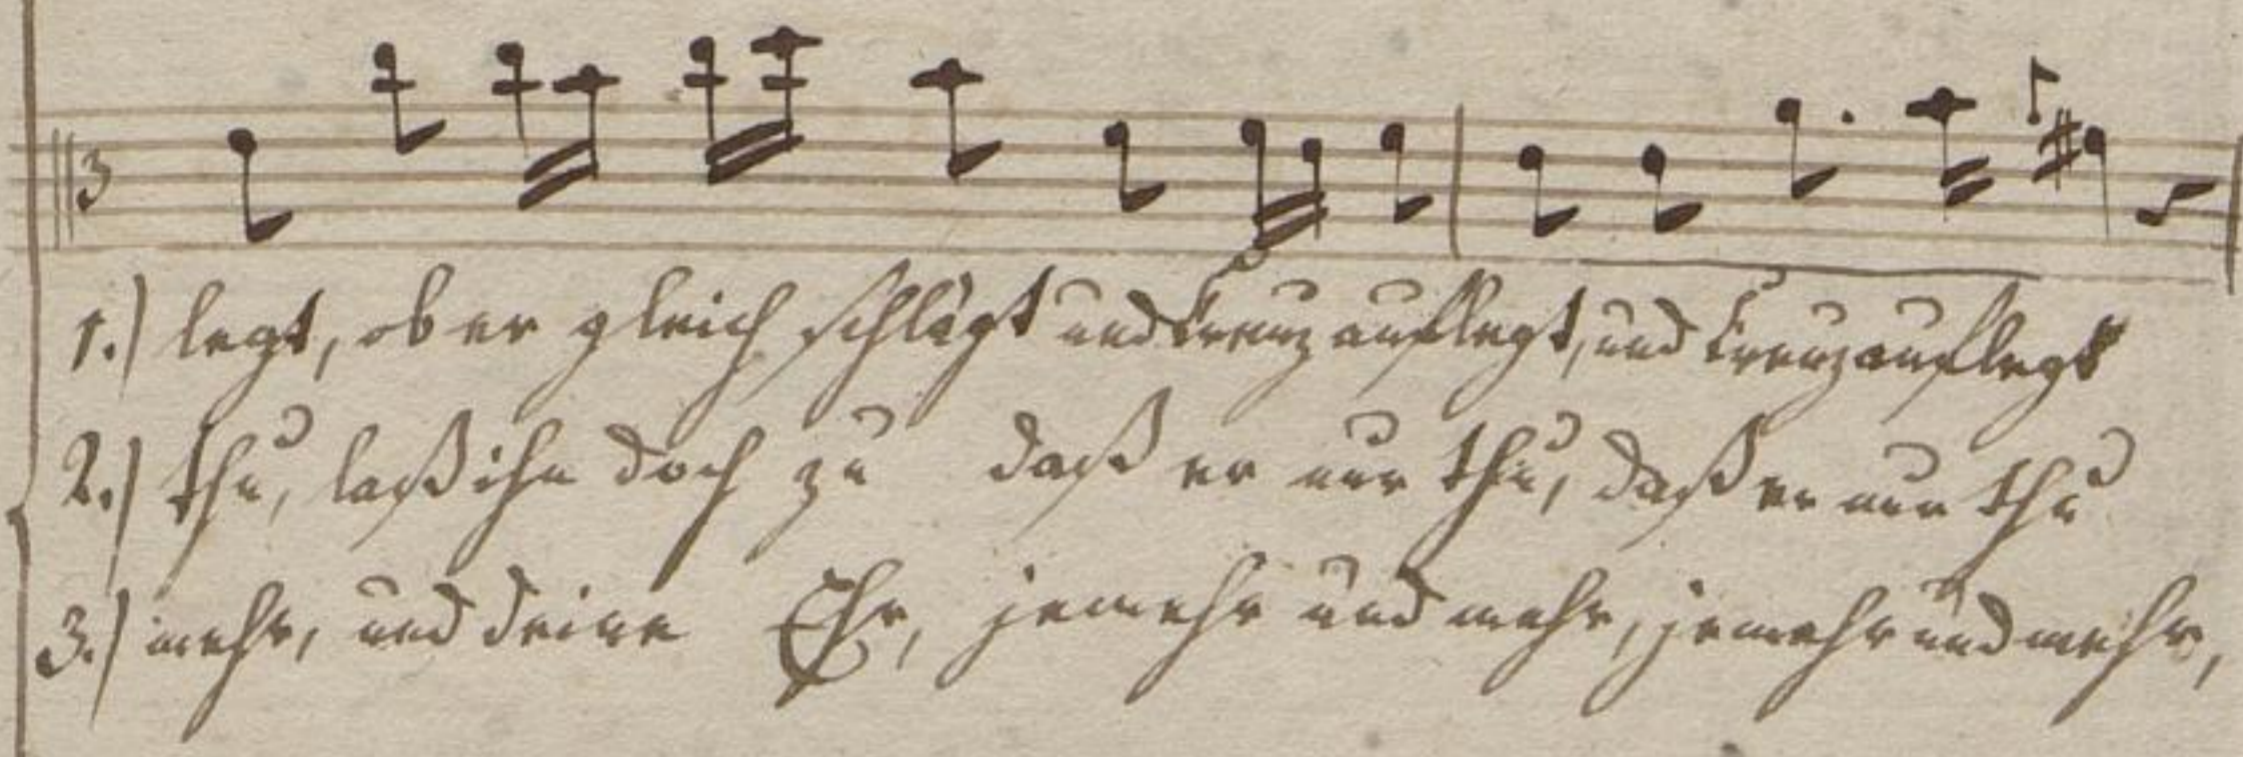 1.) legt, ob er gleich schlägt und Creuz auflegt, und Creuz auflegt
2.) thu, laß ihn doch zu daß er nur thu, daß er nur thu
3.) mehr, und deine Ehr, jemehr und mehr, jemehr und mehr,